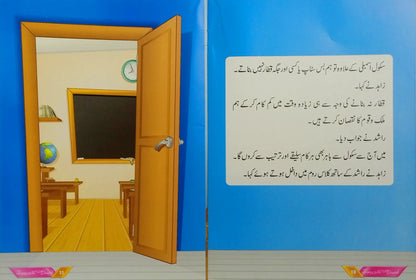 سکول اسمبلی کے علاوہ تو ہم بس سٹاپ یا کسی اور جگہ قطار نہیں بناتے۔
زاہد نے کہا۔
قطار نہ بنانے کی وجہ سے ہی زیادہ وقت میں کم کام کر کے ہم
ملک و قوم کا نقصان کرتے ہیں۔
راشد نے جواب دیا۔
میں آج سے سکول سے باہر بھی ہر کام سلیقے اور ترتیب سے کروں گا۔
زاہد نے راشد کے ساتھ کلاس روم میں داخل ہوتے ہوئے کہا۔